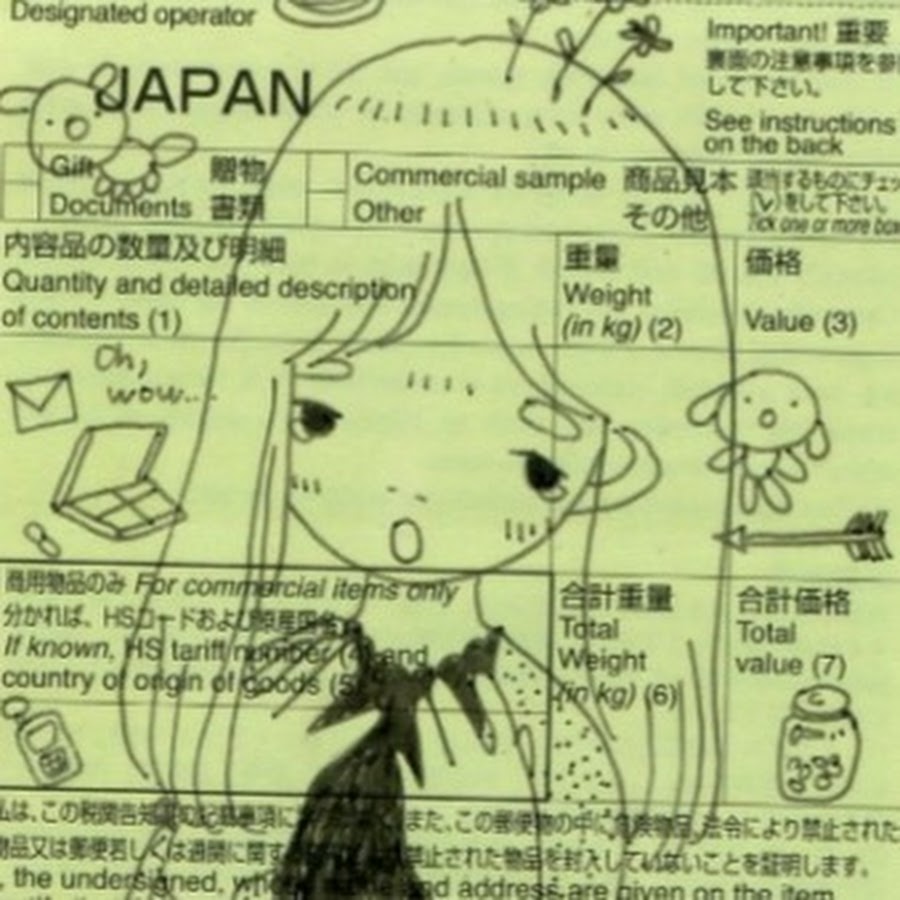 Designated operator
JAPAN
Important! 重要
裏面の注意事項を参
して下さい。
See instructions
on the back
Gift 贈物
Documents 書類
Commercial sample 商品見本
Other その他
該当するものにチェッ
をして下さい。
Tick one or more box
内容品の数量及び明細
Quantity and detailed description
of contents (1)
重量
Weight
(in kg) (2)
価格
Value (3)
Oh,
wow...
商用物品のみ For commercial items only
分かれば、HSコードおよび原産国名
If known, HS tariff number (4) and
country of origin of goods (5)
合計重量
Total
Weight
(in kg) (6)
合計価格
Total
value (7)
私は、この税関告知
また、この郵便物の中に危険物品、法令により禁止された
物品又は郵便若しくは通関に関す
禁止された物品を封入していないことを証明します。
, the undersigned,
and address are given on the item